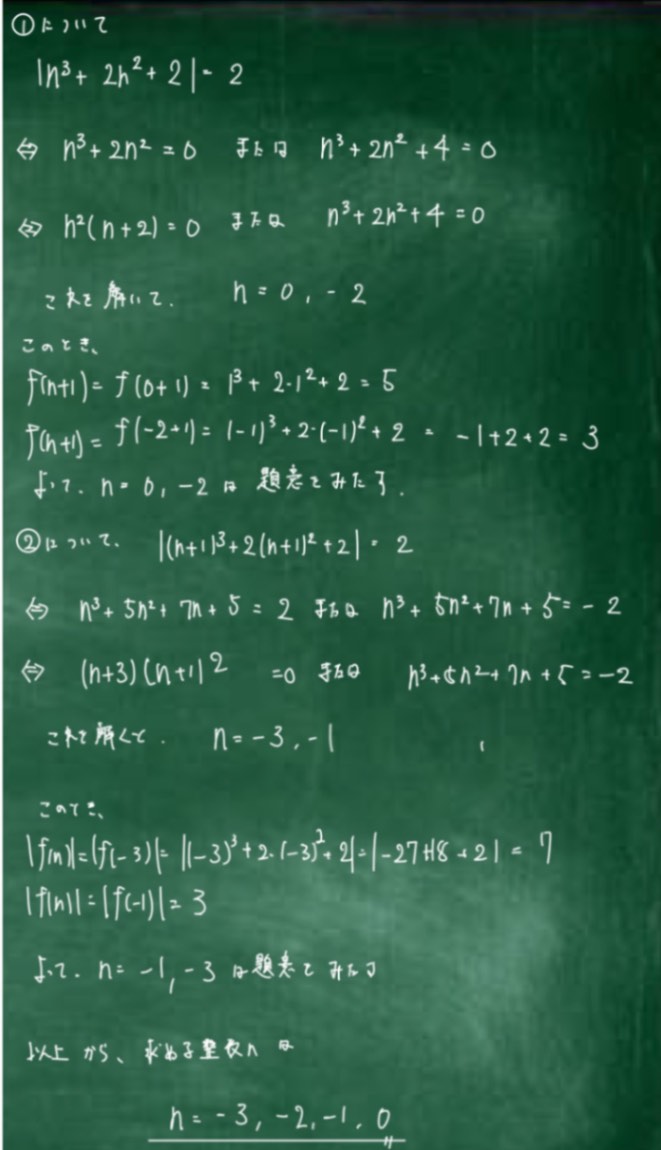 ①について
|n³+2n²+2|=2
⇔ n³+2n²=0 または n³+2n²+4=0
⇔ n²(n+2)=0 または n³+2n²+4=0
これを解いて. n=0, -2
このとき、
f(n+1)=f(0+1)=1³+2・1²+2=5
f(n+1)=f(-2+1)=(-1)³+2・(-1)²+2=-1+2+2=3
よって. n=0, -2は題意をみたす.
②について. |(n+1)³+2(n+1)²+2|=2
⇔ n³+5n²+7n+5=2 または n³+5n²+7n+5=-2
⇔ (n+3)(n+1)²=0 または n³+5n²+7n+5=-2
これを解くと. n=-3, -1
このとき、
|f(n)|=|f(-3)|=|(-3)³+2・(-3)²+2|=|-27+18+2|=7
|f(n)|=|f(-1)|=3
よって. n=-1, -3は題意をみたす
以上から、求める整数nは
n=-3, -2, -1, 0